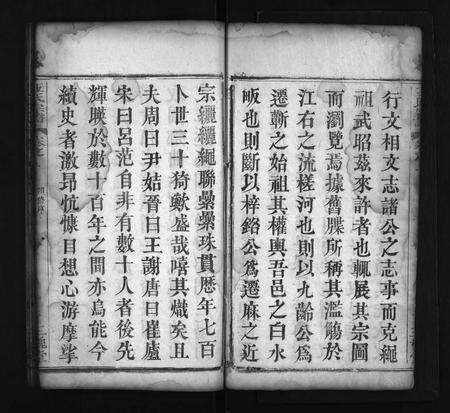 行文相文志諸公之志事而克繩
祖武昭茲來許者也輒展其宗圖
而瀏覽焉據舊牒所稱其濫觴於
江右之流槎河也則以九齡公為
遷蘄之始祖其權輿吾邑之白水
畈也則斷以梓鉻公為遷麻之近
宗纚纚繩聯纍纍珠貫歷年七百
卜世三十猗歟盛哉嘻其熾矣且
夫周曰尹姞晉曰王謝唐曰崔盧
宋曰呂范自非有數十人者後先
輝暎於數十百年之間亦烏能令
續史者激昂忼慷目想心游摩挲